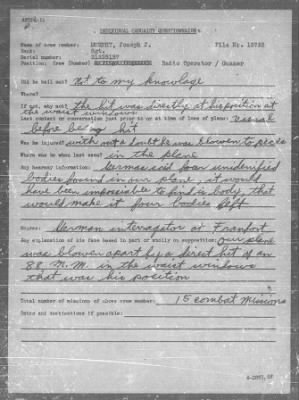 INDIVIDUAL CASUALTY QUESTIONNAIRE
Name of crew member: Joseph J. File No. 10723
Rank: Sgt.
Serial number:
Position: Crew (Number) Radio Operator / Gunner
Did he bail out? not to my knowlage
Where?
If not, why not? the hit was directly at his position at
the waist windows
Last contact or conversation just prior to or at time of loss of plane:
before being hit
Was he injured? with out a doubt he was blowen to pieces
Where was he when last seen? in the plane
Any hearsay information: Germans said four unidenified
bodies found in our plane, it would
have been impossiable to find is body, that
would make it four bodies left
Source: German interragator at Franfort
Any explanation of his fate based in part or wholly on supposition: Our plane
was blower apart by a direct hit of an
88 M.M. in the waist windows
that was his position
Total number of missions of above crew member: 15 combat missions
Dates and destinations if possible: